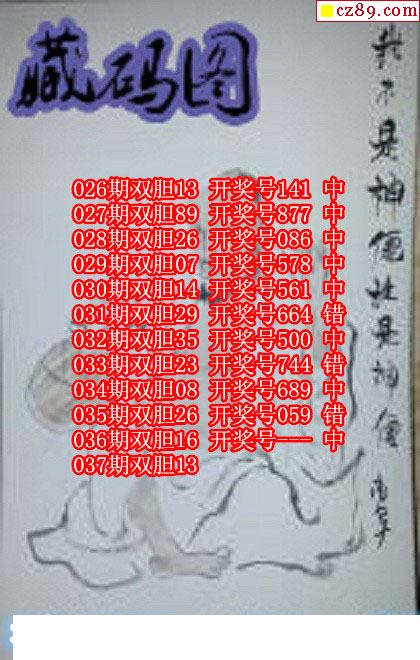 cz89.com
藏码图
026期双胆13 开奖号141 中
027期双胆89 开奖号877 中
028期双胆26 开奖号086 中
029期双胆07 开奖号578 中
030期双胆14 开奖号561 中
031期双胆29 开奖号664 错
032期双胆35 开奖号500 中
033期双胆23 开奖号744 错
034期双胆08 开奖号689 中
035期双胆26 开奖号059 错
036期双胆16 开奖号--- 中
037期双胆13
我不是神但是神